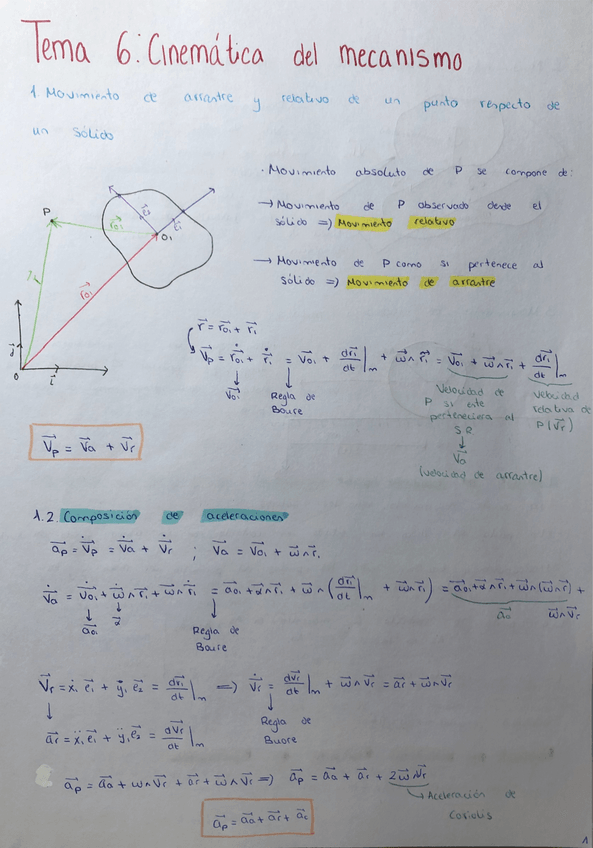 Tema 6: Cinemática del mecanismo
1. Movimiento de arrastre y relativo de un punto respecto de
un sólido
· Movimiento absoluto de P se compone de:
→ Movimiento de P observado desde el
sólido => Movimiento relativo
→ Movimiento de P como si pertenece al
sólido => Movimiento de arrastre
P
r⃗₀₁
O₁
r⃗
r⃗₀₁
j⃗
O
i⃗
r⃗ = r⃗₀₁ + r⃗₁
V⃗p = ṙ⃗₀₁ + ṙ⃗₁ = V⃗₀₁ + dr⃗₁/dt|m + ω⃗∧r⃗₁ = V⃗₀₁ + ω⃗∧r⃗₁ + dr⃗₁/dt|m
V⃗₀₁
Regla de
Boure
Velocidad de
P si este
perteneciera al
SR
V⃗a
(velocidad de arrastre)
Velocidad
relativa de
P (V⃗r)
V⃗p = V⃗a + V⃗r
1.2. Composición de aceleraciones
a⃗p = V̇⃗p = V̇⃗a + V̇⃗r ; V⃗a = V⃗₀₁ + ω⃗∧r⃗₁
V̇⃗a = V̇⃗₀₁ + ω̇⃗∧r⃗₁ + ω⃗∧ṙ⃗₁ = a⃗₀₁ + α⃗∧r⃗₁ + ω⃗∧(dr⃗₁/dt|m + ω⃗∧r⃗₁) = a⃗₀₁ + α⃗∧r⃗₁ + ω⃗∧(ω⃗∧r⃗) +
a⃗₀₁ α⃗ a⃗a ω⃗∧V⃗r
Regla de
Boure
V⃗r = ẋ₁ e⃗₁ + ẏ₁ e⃗₂ = dr⃗₁/dt|m => V̇⃗r = dv⃗r/dt|m + ω⃗∧V⃗r = a⃗r + ω⃗∧V⃗r
Regla de
Buore
a⃗r = ẍ₁ e⃗₁ + ÿ₁ e⃗₂ = dV⃗r/dt|m
a⃗p = a⃗a + ω∧V⃗r + a⃗r + ω⃗∧V⃗r => a⃗p = a⃗a + a⃗r + 2ω⃗∧V⃗r
Aceleración de
Coriolis
a⃗p = a⃗a + a⃗r + a⃗c
1